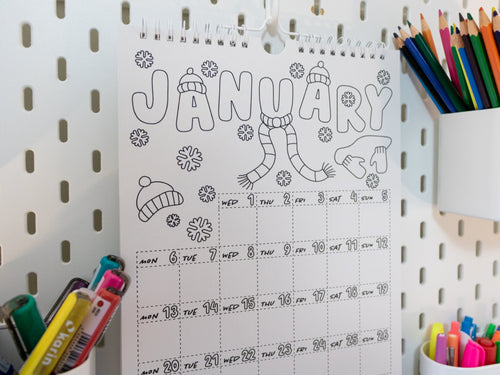 JANUARY
JANUARY
WED 1 THU 2 FRI 3 SAT 4 SUN 5
MON 6 TUE 7 WED 8 THU 9 FRI 10 SAT 11 SUN 12
MON 13 TUE 14 WED 15 THU 16 FRI 17 SAT 18 SUN 19
MON 20 TUE 21 WED 22 THU 23 FRI 24 SAT 25 SUN 26
karin